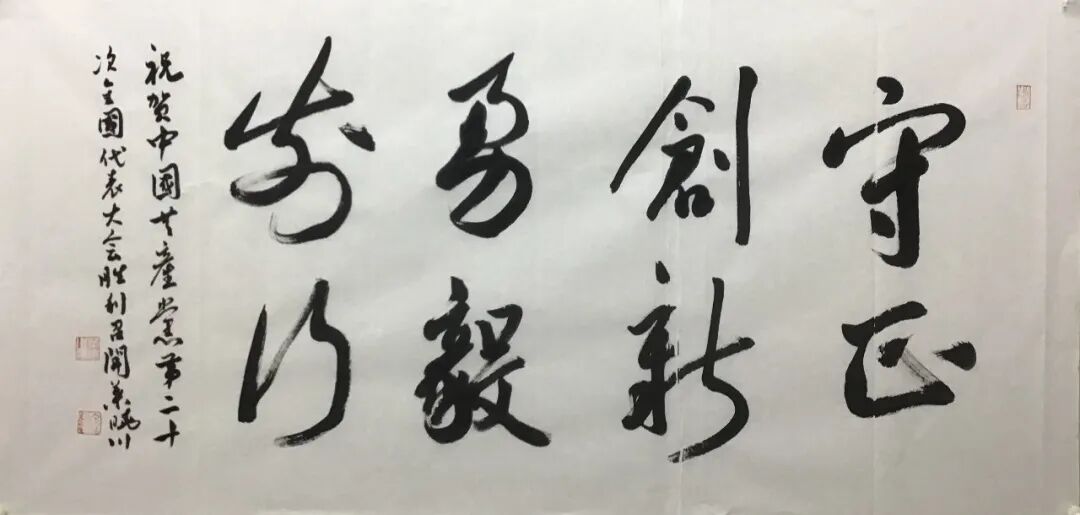 守正
創新
勇毅
前行
祝贺中國共產黨第二十
次全國代表大会胜利召開